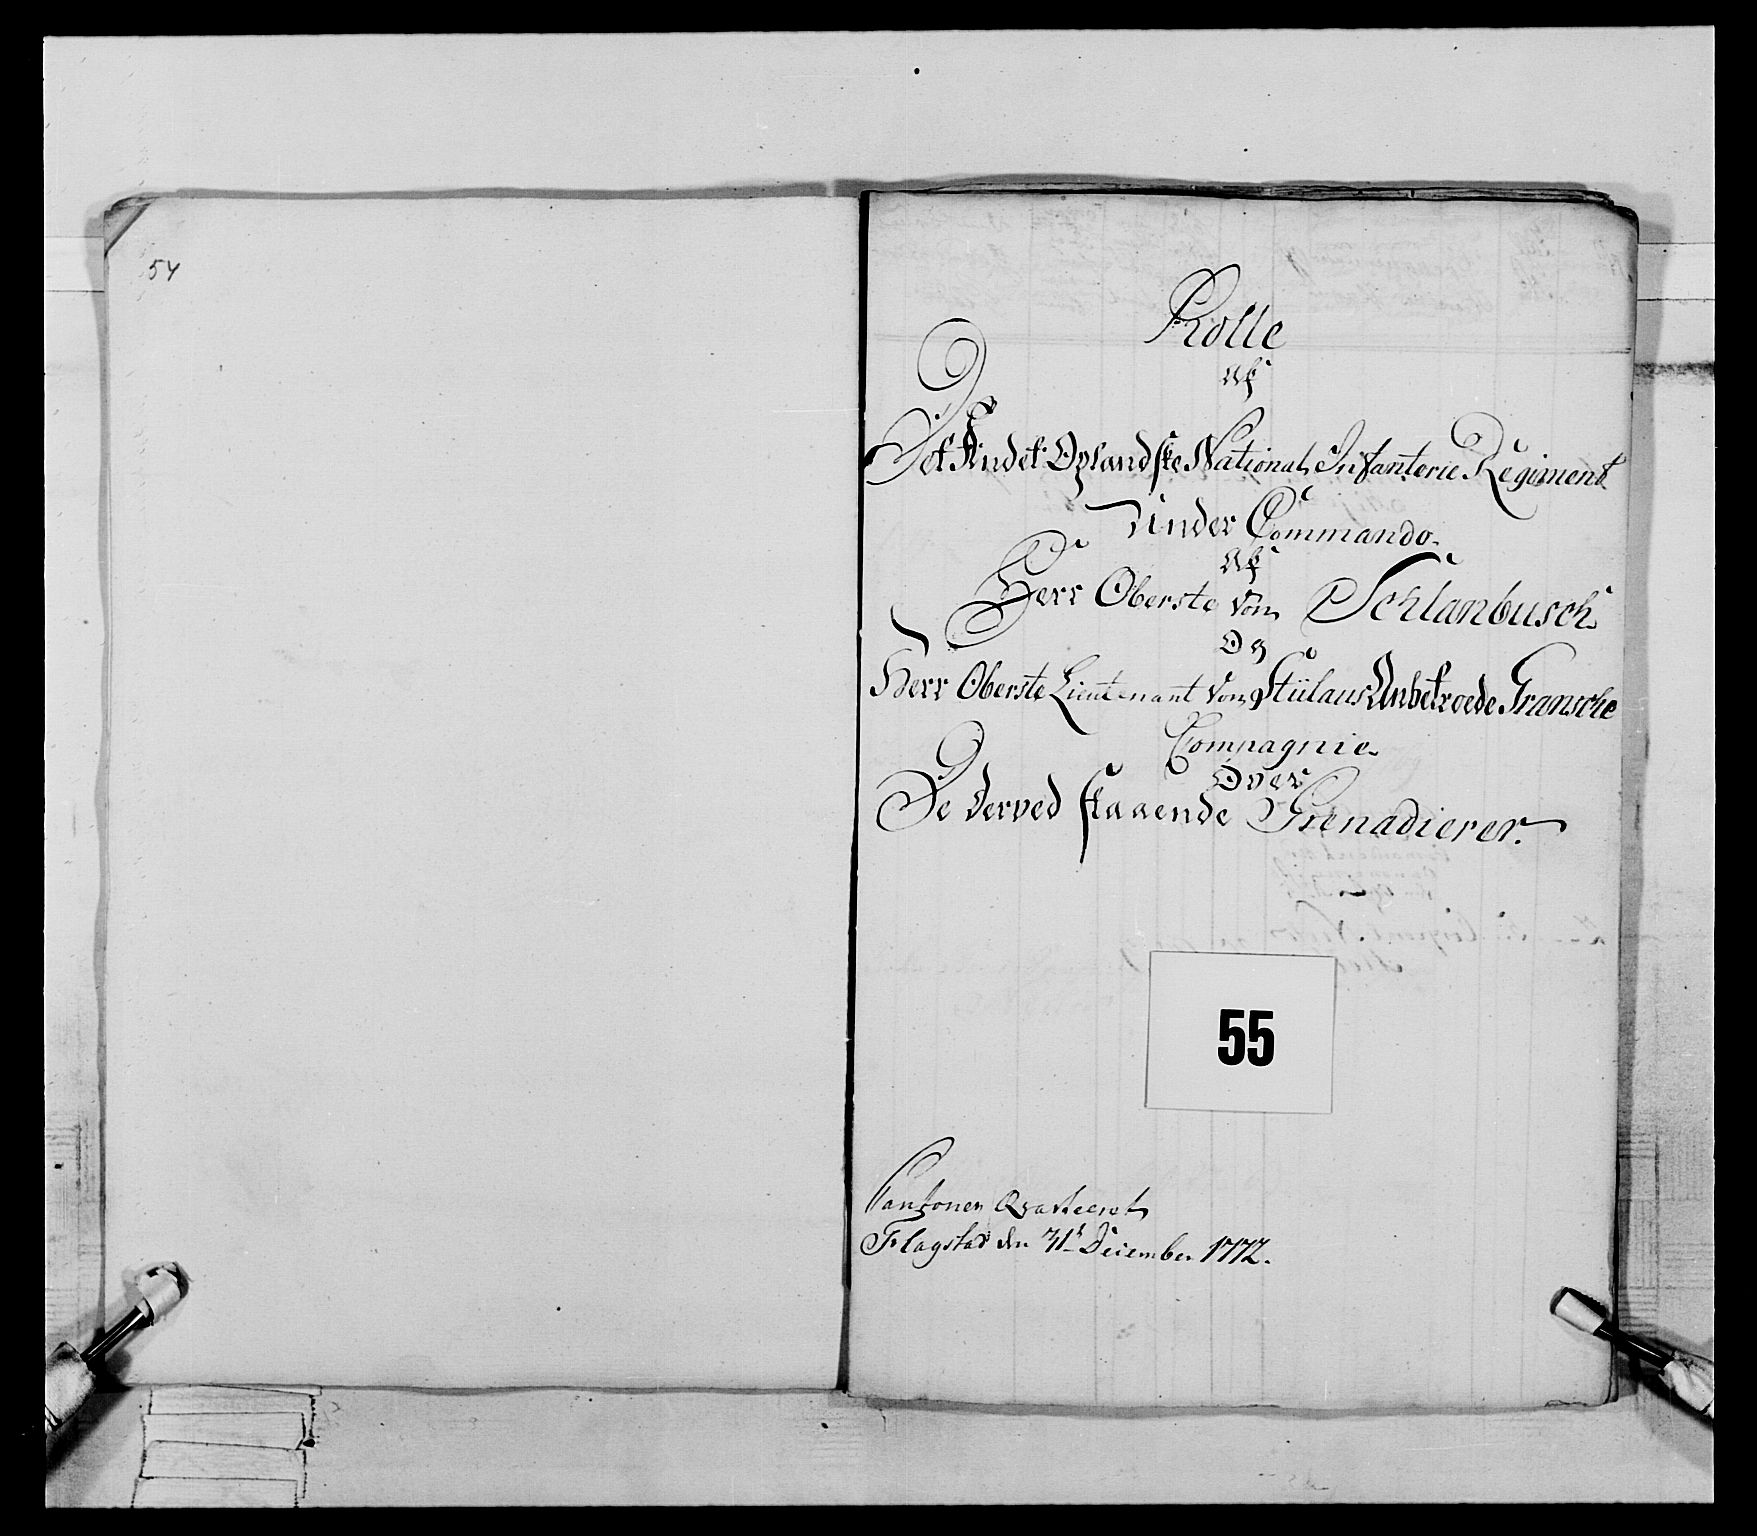 54
Rolle
Af
Det Andet Oplandske National Infanterie Regiment
under Commando
Af
Herr Oberste von Schlanbusch
Og
Herr Oberste Lieutenant von Stülaus Anbetroede Gransche
Compagnie
Over
De derved staaende Grenadierer.
55
Cantonen Qvarteeret
Flagstad den 31t December 1772.